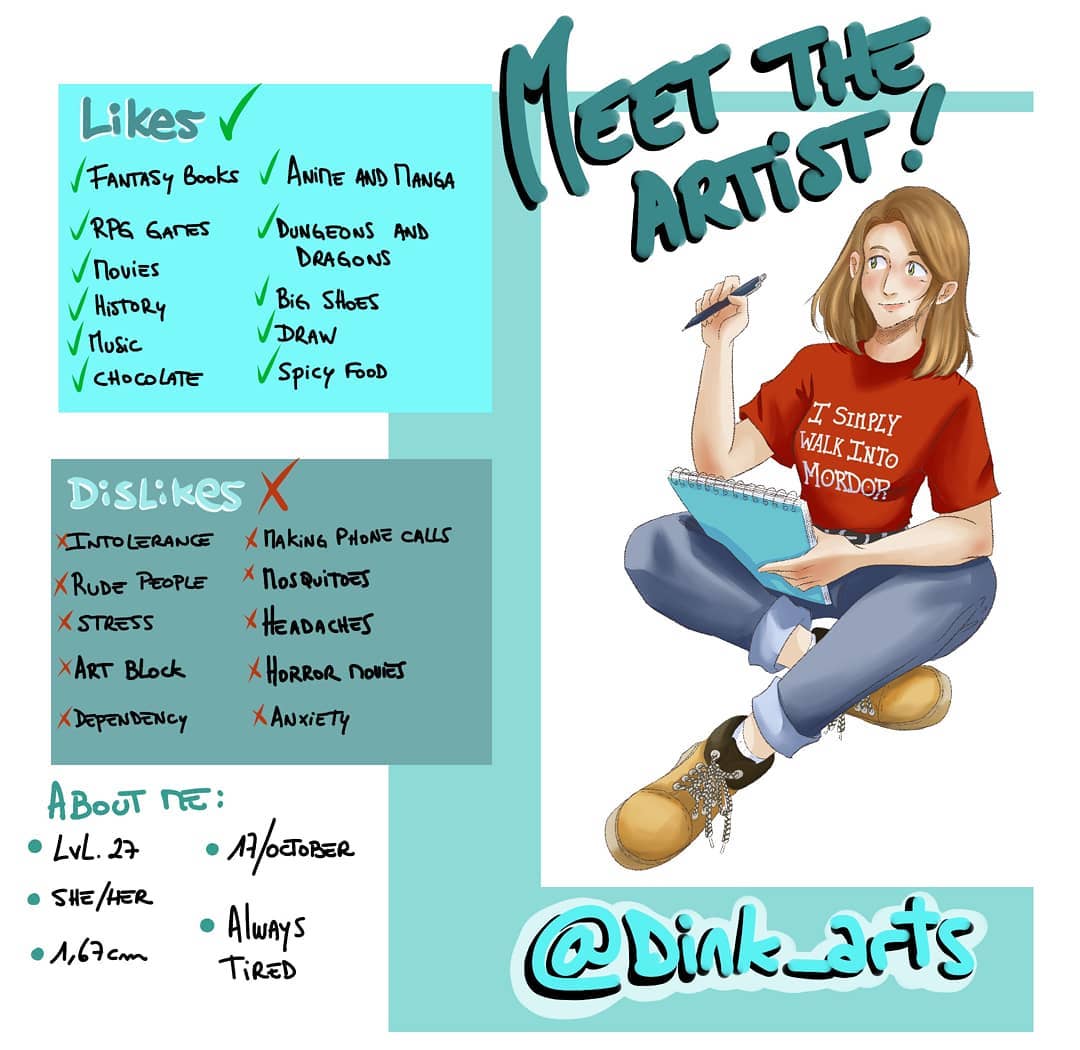 MEET THE
ARTIST!
Likes
FANTASY BOOKS
RPG GAMES
MOVIES
HISTORY
MUSIC
CHOCOLATE
ANIME AND MANGA
DUNGEONS AND
DRAGONS
BIG SHOES
DRAW
SPICY FOOD
DISLIKES
INTOLERANCE
RUDE PEOPLE
STRESS
ART BLOCK
DEPENDENCY
MAKING PHONE CALLS
MOSQUITOES
HEADACHES
HORROR MOVIES
ANXIETY
ABOUT ME:
LVL. 27
SHE/HER
1,67cm
17/OCTOBER
ALWAYS
TIRED
I SIMPLY
WALK INTO
MORDOR
@Dink_arts